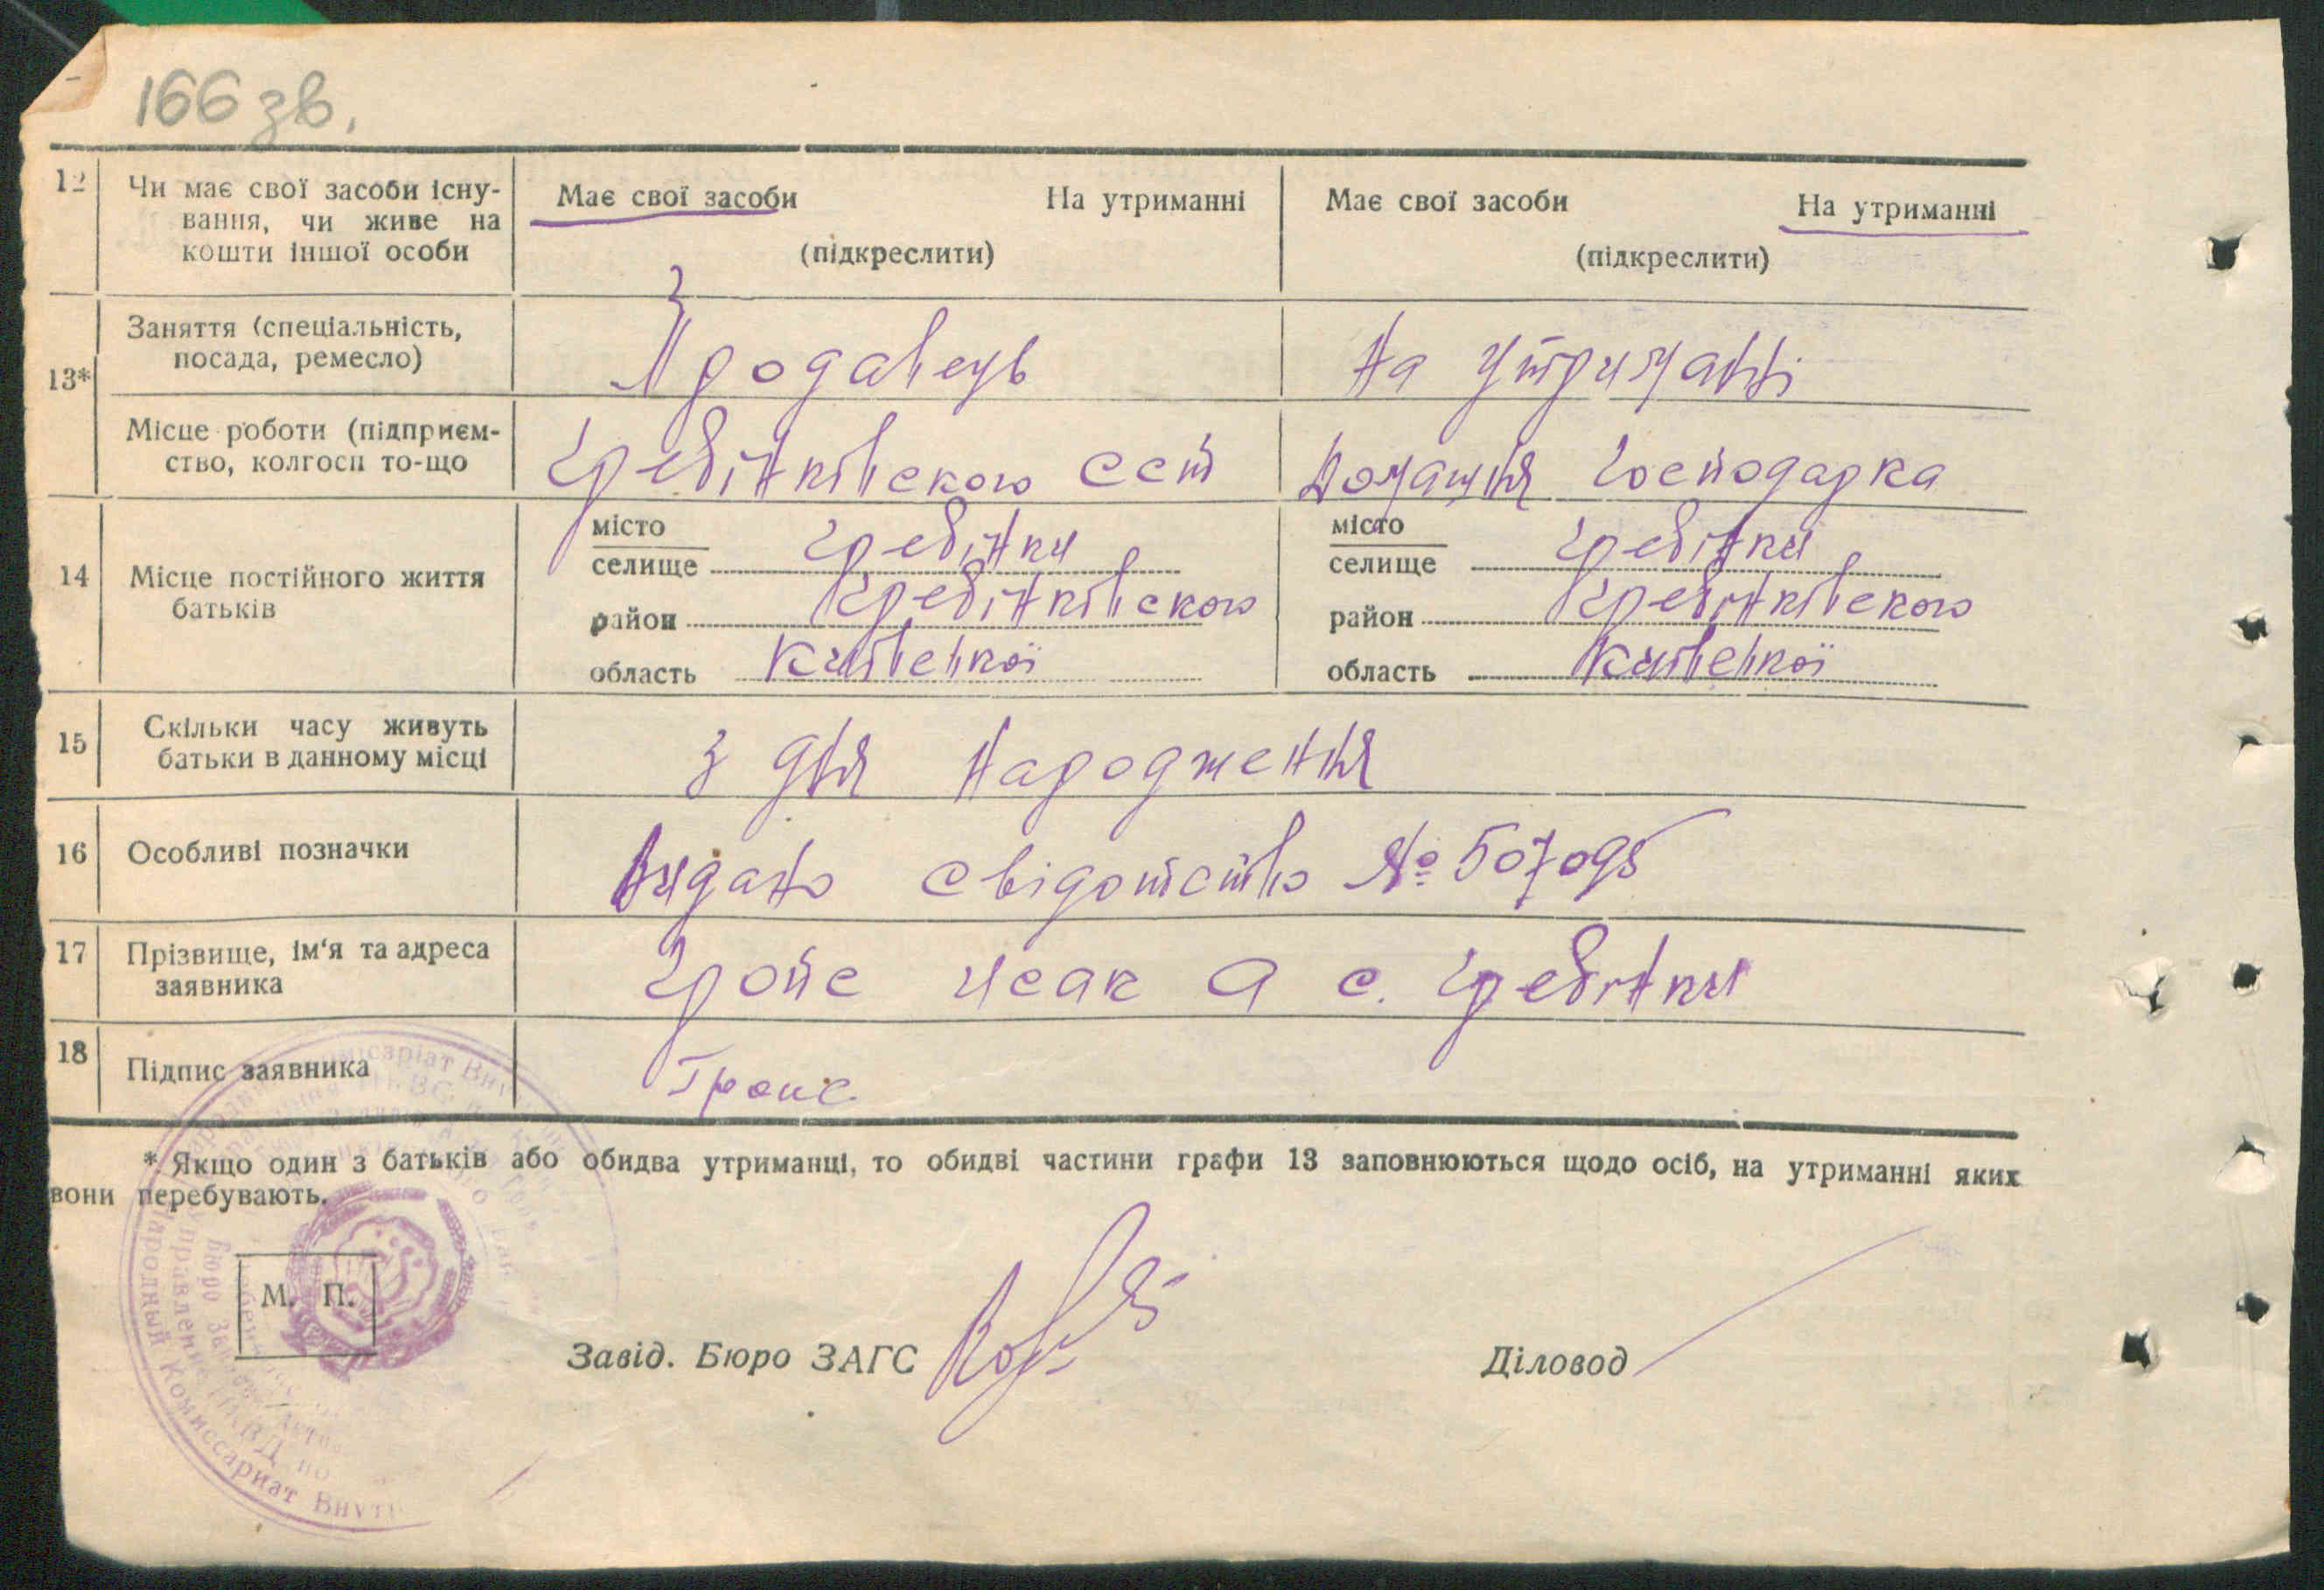 166 зв.
12 Чи має свої засоби існу- Має свої засоби На утриманні Має свої засоби На утриманні
вання, чи живе на
кошти іншої особи (підкреслити) (підкреслити)
13* Заняття (спеціальність,
посада, ремесло) Продавець На утриманні
Місце роботи (підприєм-
ство, колгосп то-що Гребінківського ССТ Домашня господарка
14 Місце постійного життя
батьків
місто
селище Гребінки
район Гребінківского
область Київської
місто
селище Гребінки
район Гребінківского
область Київської
15 Скільки часу живуть
батьки в данному місці З дня народження
16 Особливі позначки Видано свідотство № 507095
17 Прізвище, ім'я та адреса
заявника Гройс Исак А с. Гребінки
18 Підпис заявника Гройс
* Якщо один з батьків або обидва утриманці, то обидві частини графи 13 заповнюються щодо осіб, на утриманні яких
вони перебувають.
М. П.
Завід. Бюро ЗАГС
Діловод
Народный Комиссариат Внут